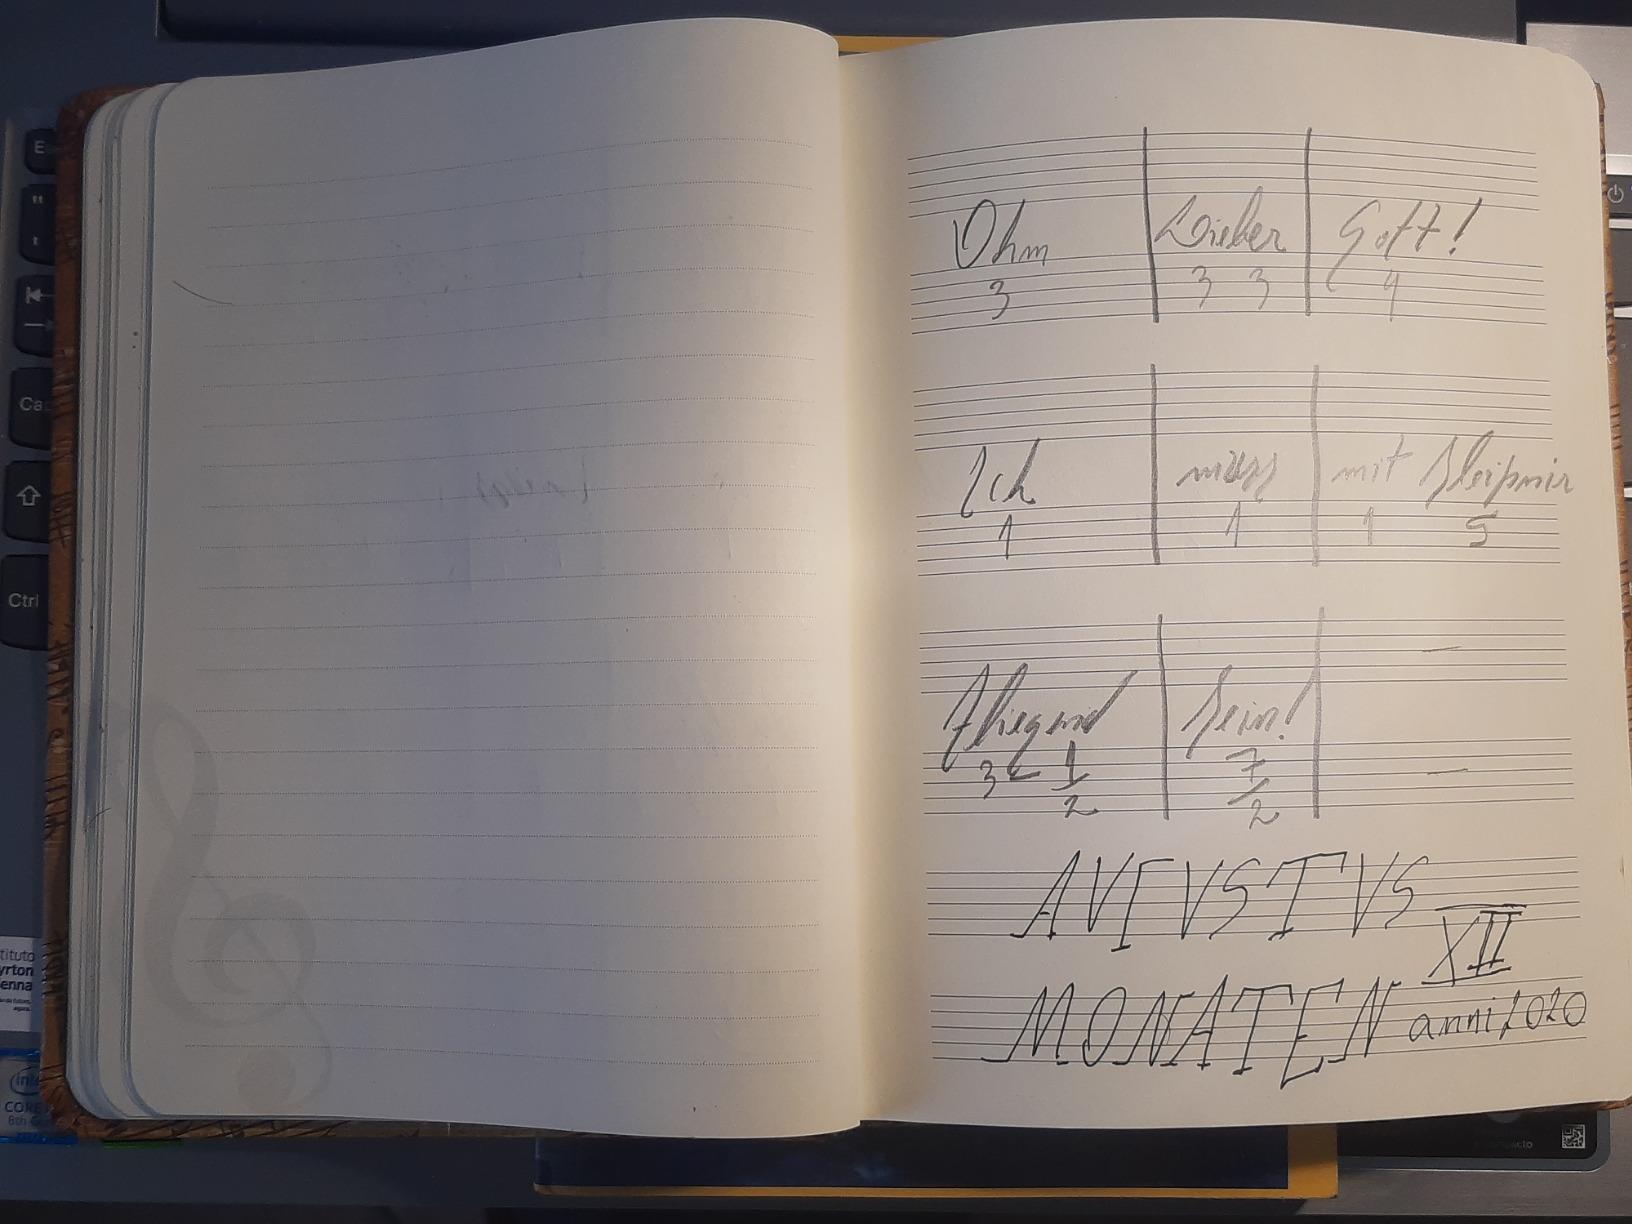 Ohm Lieber Gott!
3 3 3 4
Ich muss mit Sleipnir
1 1 1 5
fliegend sein!
3 1/2 7/2
AVGVSTVS
XII
MONATEN anni 2020
Ctrl
CORE